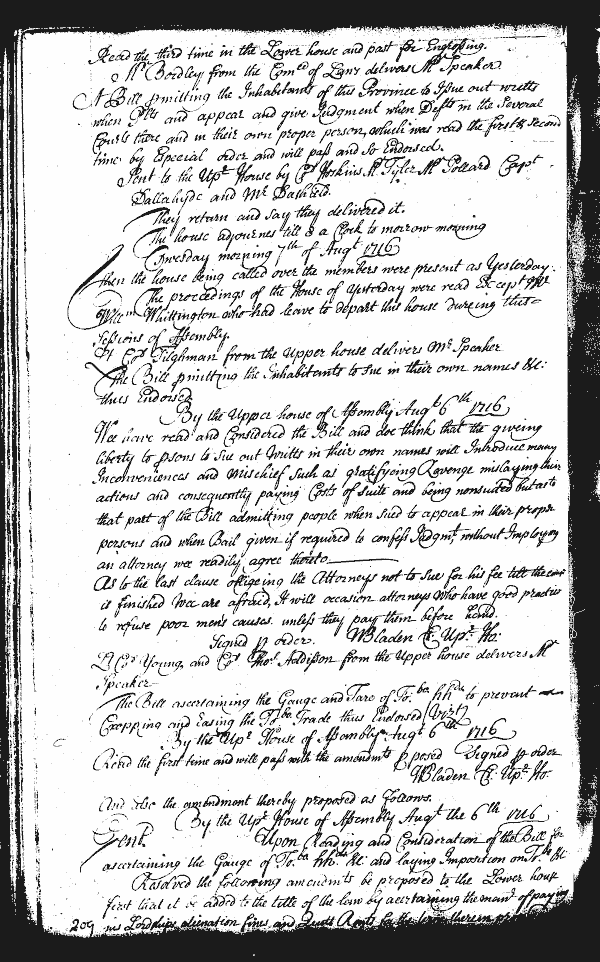 Read the third time in the Lower house and past for Engrossing.
Mr Bordley from the Com̃ee of Laws delivers Mr Speaker
A Bill ꝑmitting the Inhabitants of this Province to Issue out writts
when Pl̃ts and appear and give Judgment when Defts in the Several
Courts there and in their own proper person, which was read the first & second
time by Especial order and will pass and so Endorsed.
Sent to the Upr House by Coll Hoskins Mr Tyler Mr Pollard Capt
Dallahyde and Mr Dashield.
They return and say they delivered it.
The house adjournes till 8 a Clock to morrow morning
Twesday morning 7th of Augt 1716
Then the house being called over the members were present as Yesterday.
The proceedings of the House of Yesterday were read Except Mr
Willm Whittington who had leave to depart this house dureing this
Sessions of Assembly.
Lt Coll Tilghman from the Upper house delivers Mr Speaker
The Bill ꝑmitting the Inhabitants to Sue in their own names &c:
thus Endorsed
By the Upper house of Assembly Augt 6th 1716
Wee have read and Considered the Bill and doe think that the giveing
liberty to ꝑsons to Sue out Writts in their own names will Introduce many
Inconveniences and Mischief Such as gratifyeing Revenge mislaying their
actions and consequently paying Costs of suite and being nonsuited but as to
that part of the Bill admitting people when sued to appear in their proper
persons and when Bail given if required to confess Judgmt, without Imploying
an attorney wee readily agree thereto
As to the last clause obligeing the Attorneys not to Sue for his fee till the cause
is finished Wee are afraid, It will occasion attorneys who have good practice
to refuse poor men's causes unless they pay them before hand.
Signed ꝑ order. WBladen Cl. Upr. Ho:
Lt Coll Young and Coll Thos Addison from the Upper house delivers Mr
Speaker
The Bill ascertaining the Gauge and Tare of Tobba hhds to prevent
Cropping and easing the Tobba Trade thus Endorsed (Vizt)
By the Upr House of Assembly Augt 6th 1716
Read the first time and will pass with the amendmts ꝑposed Signed ꝑ order
WBladen Cl. Upr. Ho
And also the amendment thereby proposed as follows.
By the Upr House of Assembly Augt the 6th 1716
Gent.
Upon Reading and Consideration of the Bill for
ascertaining the Gauge of Tobba hhds &c and laying Imposition on Tobba &c
Resolved the following amendmts be proposed to the Lower house
first that it be added to the title of the law by ascertaining the manr of paying
209 his Lordships alienation fines and Quitt Rents